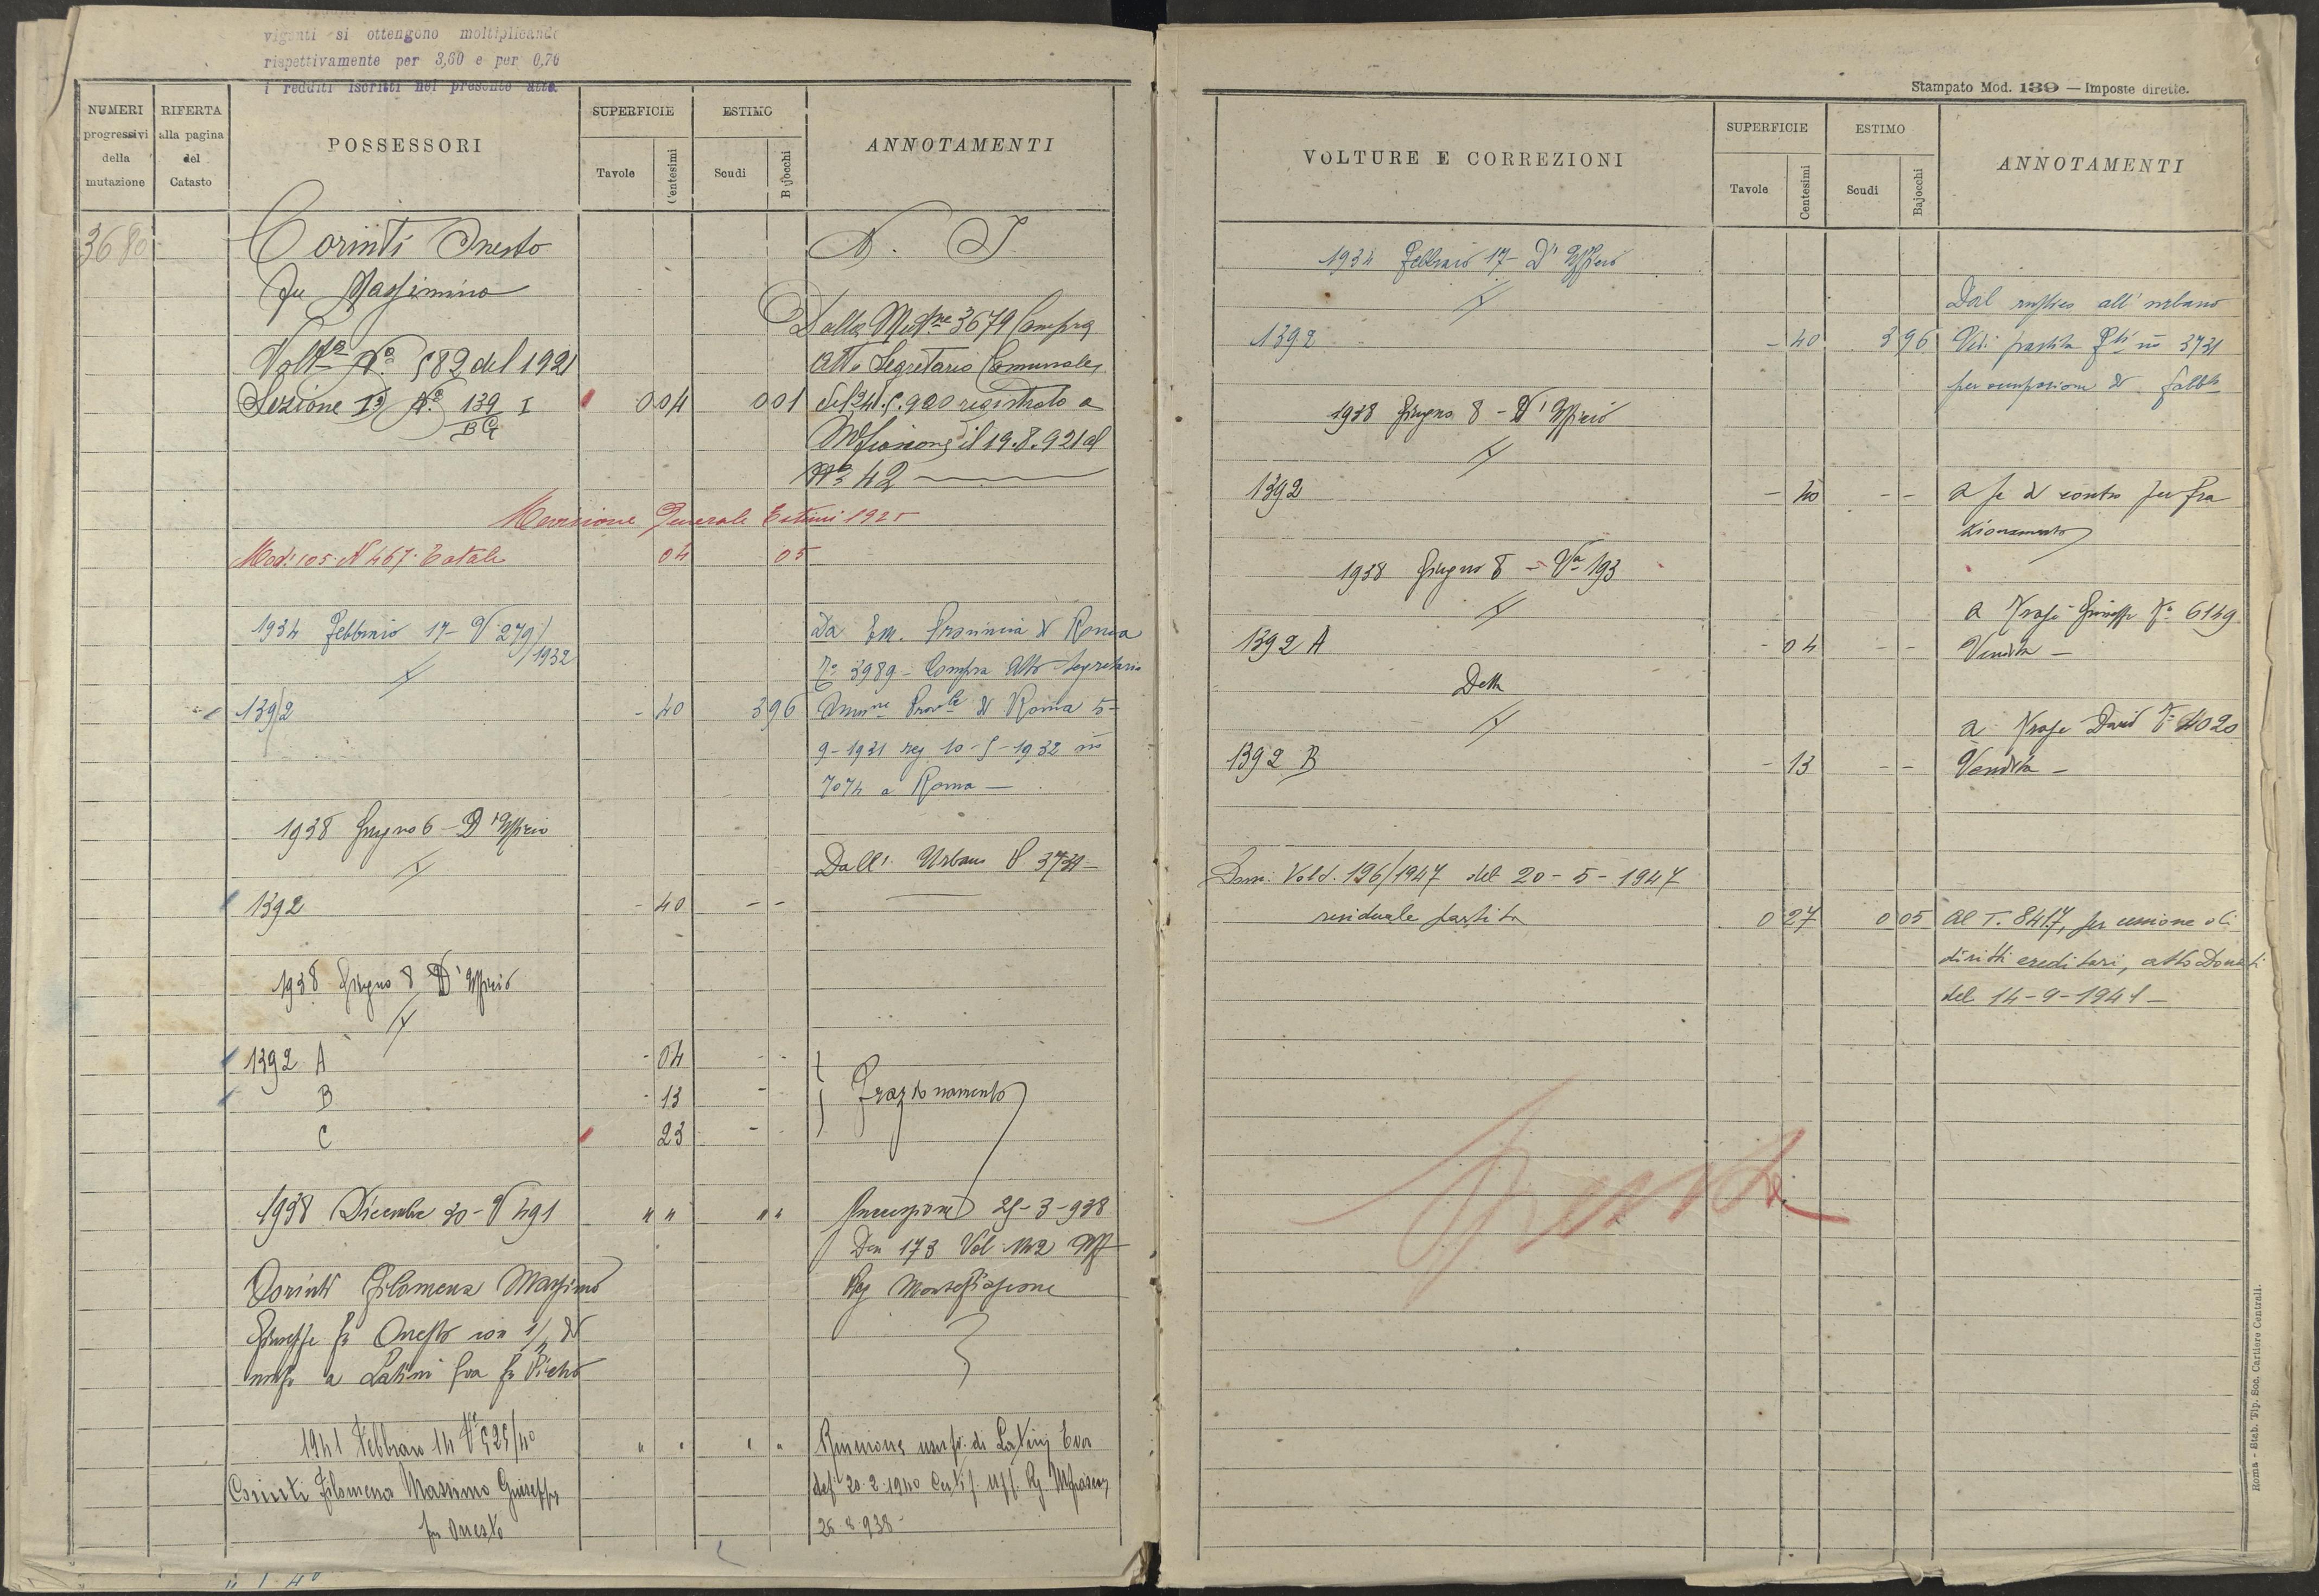 viganti si ottengono moltiplicando
rispettivamente per 3,60 e per 0,76
i redditi iscritti nel presente atto.
NUMERI progressivi della mutazione
RIFERTA alla pagina del Catasto
POSSESSORI
SUPERFICIE
Tavole
Centesimi
ESTIMO
Scudi
Bajocchi
ANNOTAMENTI
3680
Corinti Onesto
fu Massimino
Volt.a N.o 582 del 1921
Sezione I N.o 139 I
BG
0 04
0 01
Dalla Mut.ne 3679 Compra
Atto Segretario Comunale
registrato a
il 19.8.921 al
N.o 42
Revisione Generale Estimi 1925
Mod. 105 N 467 Totale
04
05
1934 Febbraio 17 - V 279/1932
1392
- 40
3 96
Da Em. Provincia di Roma
3989 - Compra Atto Segretario
Roma 5-
9-1931 reg 10-5-1932 no
7074 a Roma -
1938 Giugno 6 - D'Ufficio
Dall' Urbano P 3731 -
1392
- 40
- -
1938 Giugno 8 D'Ufficio
1392 A
- 04
- -
B
- 13
-
C
23
-
Frazionamento
1938 Dicembre 30 - V 491
" "
" "
Successione 25-3-938
Den 173 Vol 142 Uff
Reg Montefiascone
Corinti Filomena Massimo
Giuseppe fu Onesto con
usuf. a Latini Eva fu Pietro
1941 Febbraio 14 V 525/40
" "
" "
Riunione usuf. di Latini Eva
Corinti Filomena Massimo Giuseppe
def 20.2.1940 Certif. Uff. Rg.
fu Onesto
26.8.938 -
Stampato Mod. 139 — Imposte dirette.
VOLTURE E CORREZIONI
SUPERFICIE
Tavole
Centesimi
ESTIMO
Scudi
Bajocchi
ANNOTAMENTI
1934 Febbraio 17 - D'Ufficio
Dal rustico all'urbano
1392
- 40
3 96
Vedi partita 3731
per
1938 Giugno 8 - D'Ufficio
1392
- 40
- -
a se di contro per fra
zionamento
1938 Giugno 8 - Va 193
a Giuseppe 6149
1392 A
- 04
- -
Vendita -
Detta
a David 4020
1392 B
- 13
- -
Vendita -
Dom. Volt. 196/1947 del 20-5-1947
residuale partita
0 27
0 05
al T. 8417, per cessione di
diritti ereditari, atto Donati
del 14-9-1941 -
Spenta
Roma - Stab. Tip. Soc. Cartiere Centrali.